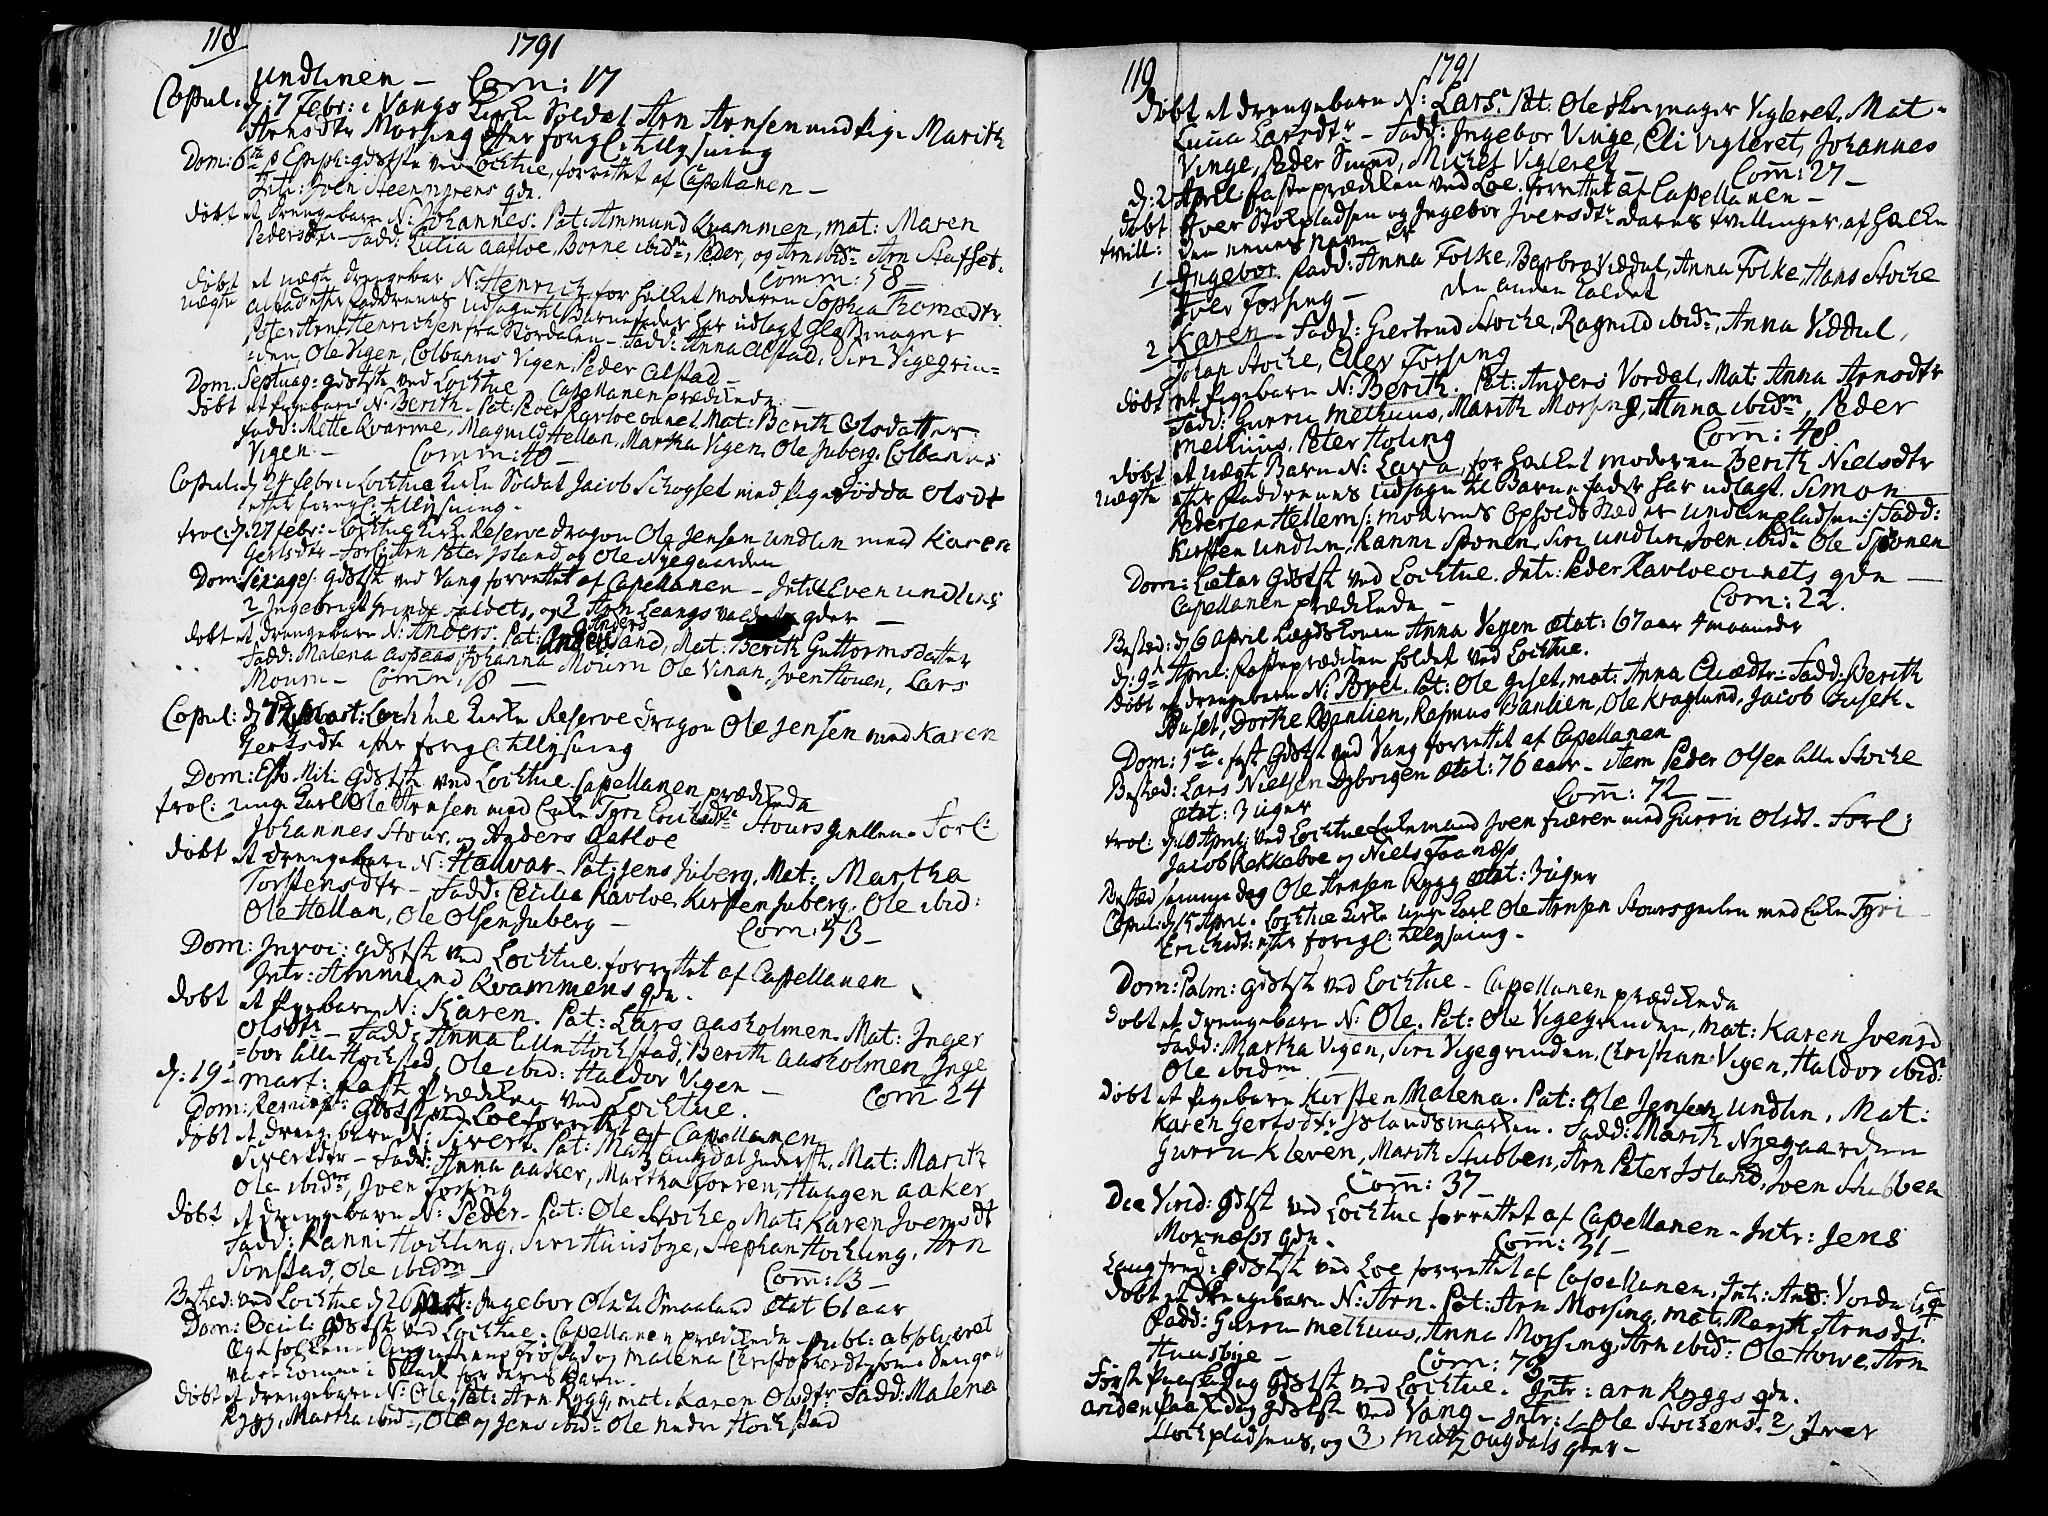 118 1791
Undlinen – Com: 17
Copul: d: 7 Febr: i Vangs Kirke Soldat Arn Arnsen med Pige Marith
Arnsdtr Morsing efter foregl: tillysning
Dom: 6ta p Epiph: gdstste ved Lochtue, forrettet af Capellanen –
Intr: Joen Steenmyrens qde.
døbt et drengebarn N: Johannes. Pat: Ammund Kvammen, mat: Maren
Pedersdtr – Fadd: Lucia Aafloe, Borne ibidm, Peder, og Arn ibidm Arn Stafset.
Comm: 58
døbt et uægte drengebar N: Henrich for hvilket moderen Sophia Thomædtr
uægte Alstad efter faddrenes udsagn til Barnefader har udlagt Glassmager
Peter Arnt Henrichsen fra Stordalen – Fadd: Anna Alstad, Siri Vigegrin=
=den, Ole Vigen, Colbanus Vigen, Peder Alstad –
Dom: Septuag: gdstste ved Lochtue – Capellanen prædikede
døbt et Pigebarn N: Berith. Pat: Peder Ravloevanet, Mat: Berith Olsdatter
Fadd: Mette Kvarme, Magnild Hellan, Martha Vigen, Ole Juberg, Colbanus
Vigen – Comm: 40 –
Copul: d 24 febr: i Lochtue Kirke Soldat Jacob Schogset med Pige Gødda Olsdt
efter foregl: tillysning.
trol: d. 27 febr: i Lochtue Kirke Reserve dragon Ole Jensen Undlin med Karen
Gertsdtr – Forl: Arn Peter Island og Ole Nyegaarden
Dom: Sexages: gdstst ved Vang forrettet af Capellanen – Intr: 1 Even Undlins
2 Ingebrigt Grindevoldets, og 3 Arn Leangs valdets qder –
døbt et drengebarn N: Anders. Pat: Anders Sand, Mat: Berith Guttormsdatter
Fadd: Malena Aspaas, Johanna Mourn Ole Vinan, Iver Houen, Lars
Mourn – Comm: 18 –
Copul: d Mart: Lochtue Kirke Reserve dragon Ole Jensen med Karen
Gertsdtr efter foregl: tillysning
Dom: Esto Mihi gdstst ved Lochtue. Capellanen prædikede
trol: unge Karl Ole Arnsen med Enke Tyri Erichsdtr Stours grellen – Forl:
Johannes Stour, og Anders Aatloe
døbt et drengebarn N: Halvar – Pat: Jens Juberg, Mat: Martha
Torstensdtr – Fadd: Cecilia Ravloe, Kirsten Juberg, Ole ibid:
Ole Hellan, Ole Olsen Juberg – Com: 53 –
Dom: Invoc: gdstst ved Lochtue forrettet af Capellanen
Intr: Ammund Kvammens qde.
døbt et Pigebarn N: Karen. Pat: Lars Aasholmen. Mat: Inger
Olsdtr – Fadd: Anna lille Hochstad, Berith Aasholmen, Inge
=bor lille Hochstad, Ole ibid: Haldor Vigen – Com 24
d: 19 – mart: Faste Prædiken ved Lochtue.
Dom: Reminis: gdstst ved Loe forrettet af Capellanen
døbt et drengebarn N: Sivert. Pat: Matz Augdal Inderst, Mat: Marith
Sivertsdtr – Fadd: Anna Aaker, Martha Forren, Haagen Aaker
Ole ibidm, Joen Forsing
døbt et drengebarn N: Peder – Pat: Ole Stoche, Mat: Karen Joensdt
Fadd: Ranni Hochling, Siri Huusbye, Stephan Hochling, Arn
Sonstad, Ole ibidm – Com: 13 –
Bested: ved Lochtue d 26 Mart: Ingebor Olsdtr Smaaland ætat 61 aar
Dom: Oculi: gdstst ved Lochtue. Capellanen prædikede – Publ: absolveret
Ægtefolkene Augustinus Frostad og Malena Christophersdt, som Senge
vare komne i Stand for deres Barn.
døbt et drengebarn N: Ole. Pat: Arn Rygg, mat: Karen Olsdtr Fadd: Malena
Rygg, Martha ibid, Ole og Jens ibid: Ole nedre Hochstad
119 1791
døbt et drengebarn N: Lars. Pat: Ole Skomager Vigleret, Mat –
Lucia Larsdtr – Fadd: Ingebor Vinge, Eli Vigleret, Johannes
Vinge, Peder Sund, Michel Vigleret – Com: 27 –
d: 2 April: Faste prædiken ved Loe. forrettet af Capellanen –
døbt Iver Stokpladsen og Ingebor Iversdtr deres tvillinger, af hvilke
tvill: den eenes navn er
1 Ingebor. Fadd: Anna Folke, Barbro Viddal, Anna Folke, Hans Stoche
Iver Forsing – den anden kaldet
2 Karen – Fadd: Giertrud Stoche, Ragnild ibid, Anna Viddul,
Johan Stoche, Ellev Forsing
døbt et Pigebarn N: Berith. Pat: Anders Vordal, Mat: Anna Arnsdtr
Fadd: Gurru Melhuus, Marith Morsing, Anna ibidm, Peder
Melhuus, Peter Holing Com: 48
døbt et uægt Barn N: Lava, for hvilket moderen Berith Nielsdtr
uægte efter Faddrenes Udsagn til Barnefader har udlagt. Simon
Pedersen Hellem /: moderens Opholds Sted er Undlinpladsen :/ Fadd:
Kirsten Undlin, Ranni Sponen, Siri Undlin, Joen ibid: Ole Sponen
Dom: Lætar gdstst ved Lochtue. Intr: Peder Ravloevanets qde –
Capellanen prædikede – Com: 22.
Bested: d 6 April Lægdskonen Anna Vejen ætat: 67 aar 4 maaneder
d: 9de April: Fasteprædiken holdet ved Lochtue.
døbt et drengebarn N: Povel. Pat: Ole Giset, mat: Anna Eliædtr – Fadd: Berith
Buset, Dorthe Banlien, Rasmus Banlien, Ole Kraglund, Jacob Buseth.
Dom: 5ta i fast gdstst ved Vang forrettet af Capellanen
Bested: Lars Nielsen Dybvigen ætat: 76 aar – item Peder Olsen lille Stoche
ætat: 3 uger Com: 72 –
trol: d: 10 April: ved Lochtue Enkemand Joen Fiæren med Gurru Olsdt. Forl:
Jacob Rekkeboe og Niels Faanæss
Bested samme dag Ole Arnsen Rygg ætat: 3 uger
Copul: d 15 April i Lochtue Kirke unge Karl Ole Arnsen Stoursgrelen med Enke Tyri –
Erichsdt: efter foregl: tillysning –
Dom: Palm: gdstst ved Lochtue – Capellanen prædikede
døbt et drengebarn N: Ole. Pat: Ole Vigegrinden, mat: Karen Joensd
Fadd: Martha Vigen, Siri Vigegrinden, Christian Vigen, Haldor ibid:
Ole ibidm
døbt et Pigebarn Kirsten Malena. Pat: Ole Jensen Undlin, Mat:
Karen Gertsdtr Islandsmarken. Fadd: Marith Nyegaarden
Gurru Kleven, Marith Stubben, Arn Peter Island, Joen Stubben
Com: 37
Die Virid: gdtst ved Lochtue forrettet af Capellanen – Intr: Jens
Moxnæss qde. Com: 31 –
Langfred: gdstst ved Loe forrettet af Capellanen, Intr: And: Vordals qe
døbt et drengebarn N: Arn – Pat: Arn Morsing, mat: Marith Arnsdt.
Fadd: Gurru Melhuus, Anna Morsing, Arn ibid: Ole Howe, Arn
Huusbye – Com: 73
Første Paaske dag gdstst ved Lochtue. Intr: Arn Ryggs qde.
anden Paaskedag gdstst ved Vang – Intr: 1 Ole Stochens, 2 Iver
Stochpladsens, og 3 Matz Ougdals qder –